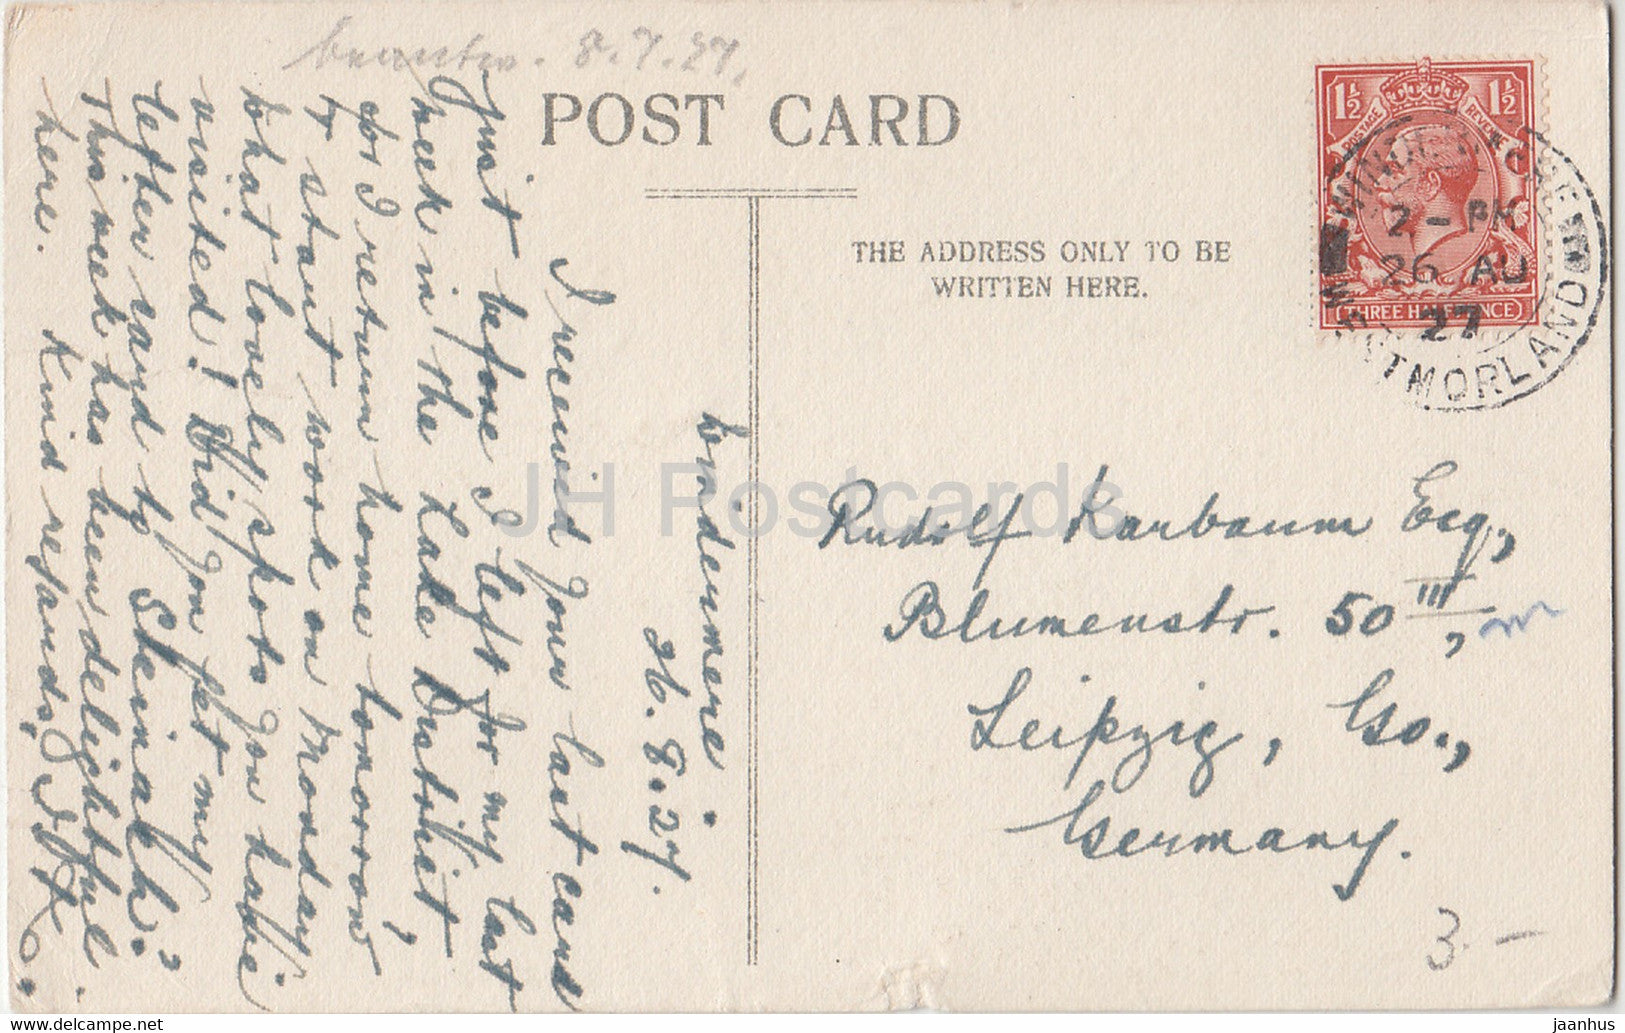 8.7.27.
POST CARD
THE ADDRESS ONLY TO BE
WRITTEN HERE.
1½ 1½
POSTAGE REVENUE
THREE HALFPENCE
WINDERMERE
2 - PM
26 AU
27
WESTMORLAND
Windermere.
26.8.27.
I received your last card
just before I left for my last
week in the Lake District
for I return home tomorrow,
& start work on Monday
What lovely spots you have
visited! Did you get my
letter card by Steinach?
This week has been delightful
here. Kind regards,
Rudolf Karbaum Esq,
Blumenstr. 50 III,
Leipzig, Go.,
Germany.
3 -
JH Postcards
jaanhus @ delcampe.net